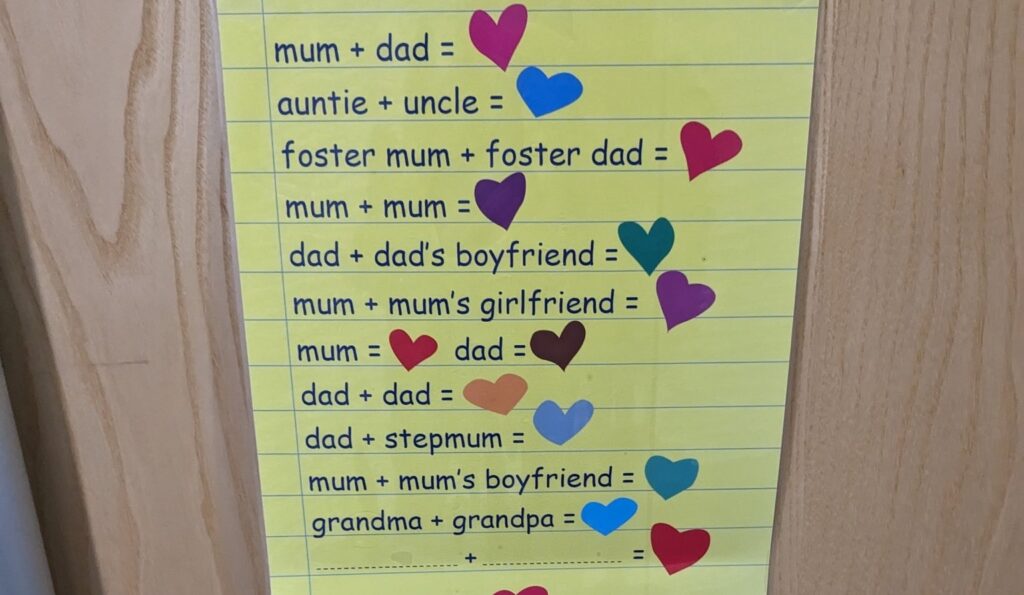 mum + dad =
auntie + uncle =
foster mum + foster dad =
mum + mum =
dad + dad's boyfriend =
mum + mum's girlfriend =
mum = dad =
dad + dad =
dad + stepmum =
mum + mum's boyfriend =
grandma + grandpa =
+ =